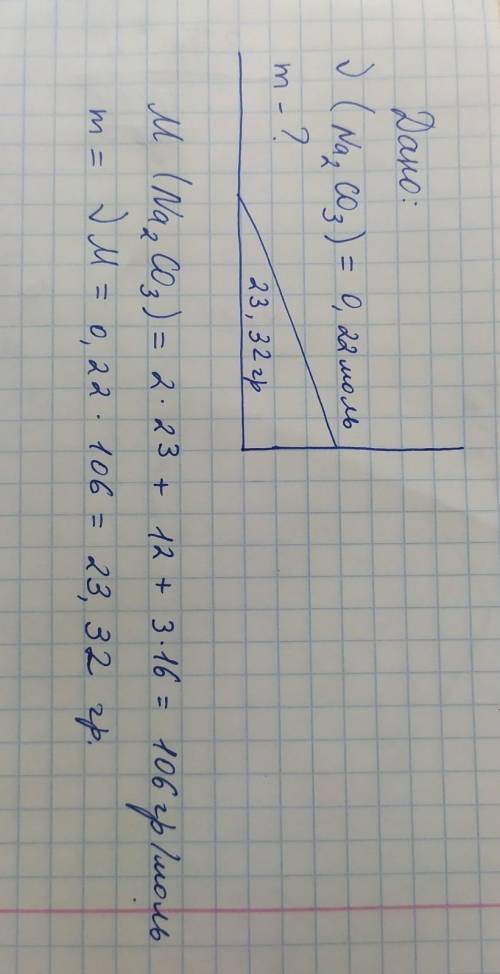 Дано:
ν (Na₂CO₃) = 0,22 моль
m - ?
23,32 гр
M (Na₂CO₃) = 2·23 + 12 + 3·16 = 106 гр/моль
m = νM = 0,22 · 106 = 23,32 гр.